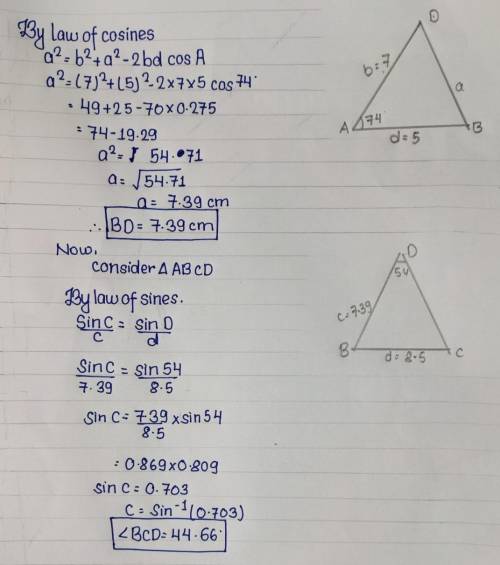 By law of cosines
a² = b² + a² - 2bd cos A
a² = (7)² + (5)² - 2×7×5 cos 74°
= 49 + 25 - 70 × 0.275
= 74 - 19.29
a² = 54.71
a = √54.71
a = 7.39 cm
∴ BD = 7.39 cm
Now,
consider Δ ABCD
By law of sines.
Sin C/c = sin D/d
Sin C/7.39 = sin 54/8.5
Sin C = 7.39/8.5 × sin 54
= 0.869 × 0.809
sin C = 0.703
C = Sin⁻¹(0.703)
∠BCD = 44.66°
D
b = 7
a
A
74°
B
d = 5
D
54
c = 7.39
B
d = 8.5
C